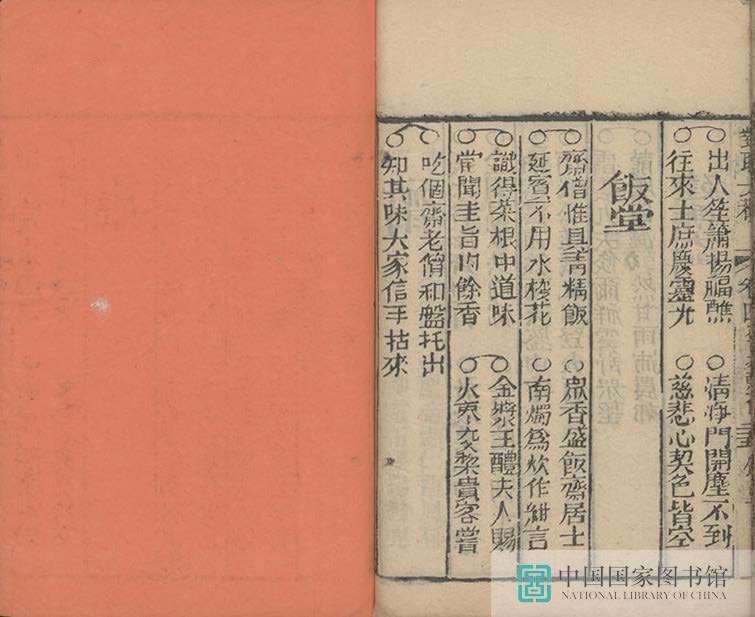 ○出入笙簫揚福醮 ○清淨門開塵不到
○往來士庶慶靈光 ○慈悲心契色皆空
飯堂
○齋僧惟具菁精飯 ○眾香盛飯齋居士
○延賓不用水梭花 ○南燭爲炊作紺言
○識得菜根中道味 ○金漿玉醴夫人賜
○常聞圭旨內餘香 ○火棗交梨貴客嘗
○吃個齋老僧和盤托出
○知其味大家信手拈來
中国国家图书馆
NATIONAL LIBRARY OF CHINA